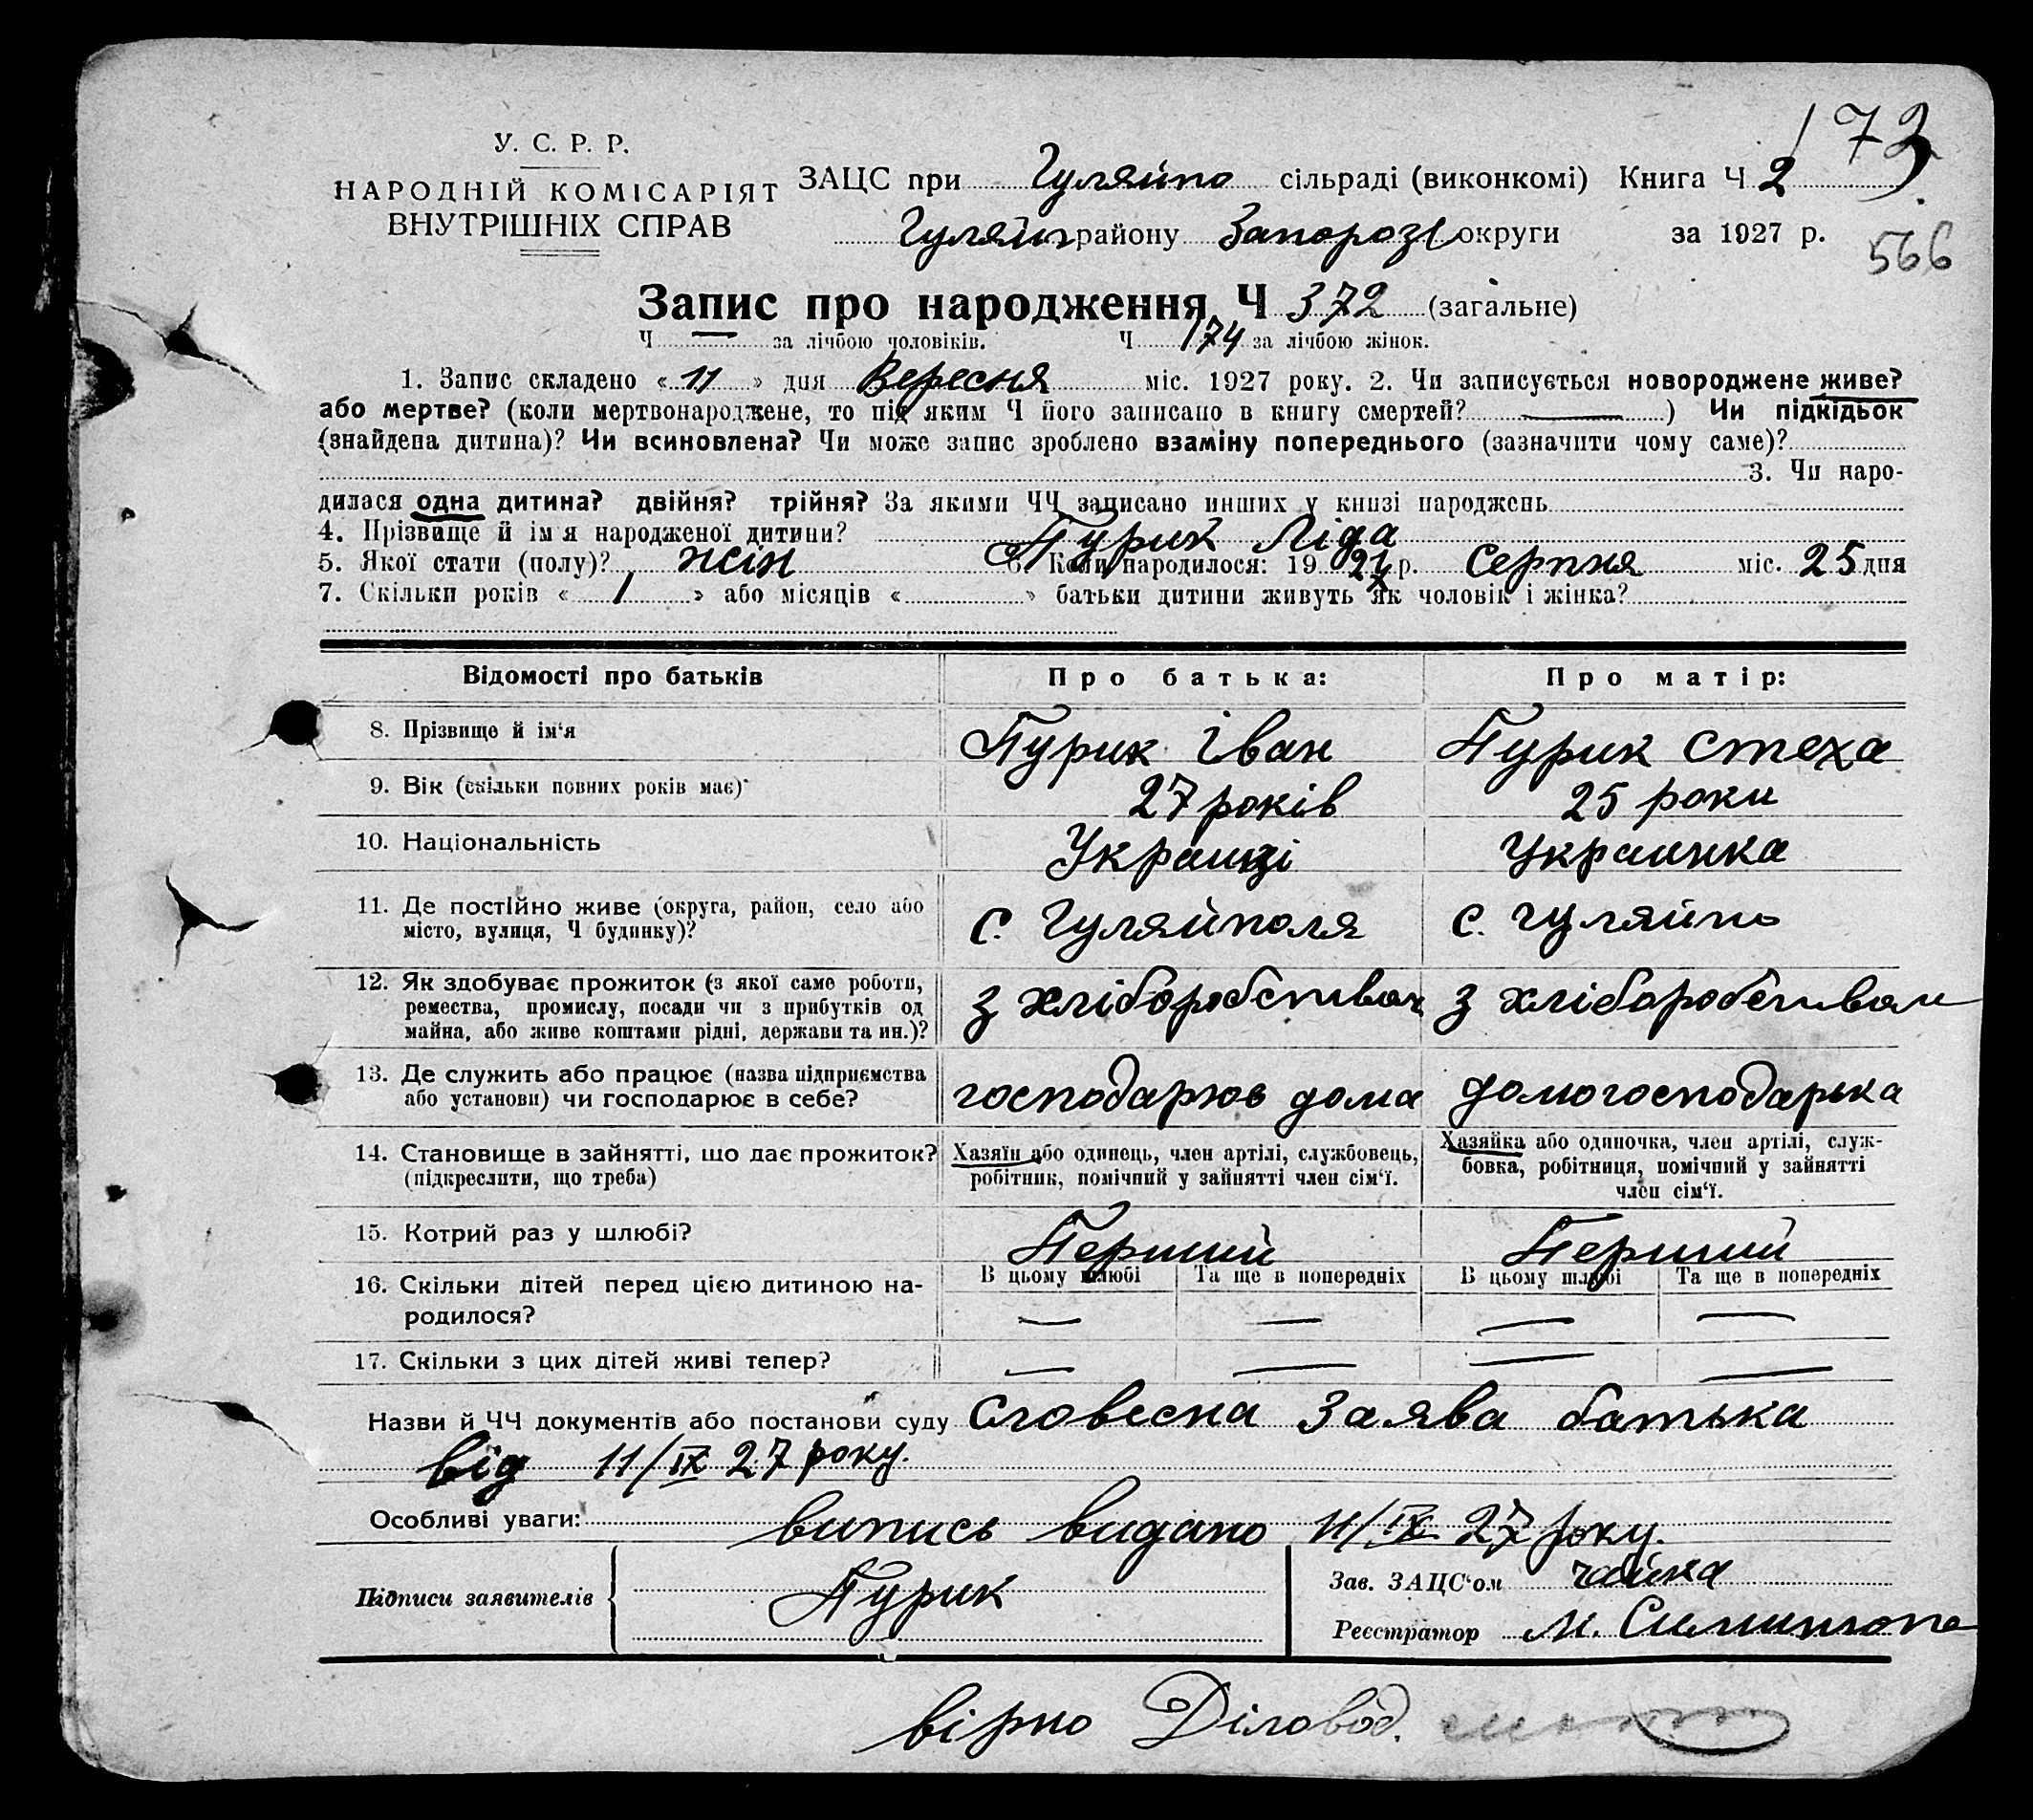 173
У. С. Р. Р.
НАРОДНІЙ КОМІСАРІЯТ
ВНУТРІШНІХ СПРАВ
ЗАЦС при Гуляйпо сільраді (виконкомі) Книга Ч 2
Гуляйп району Запорозі округи за 1927 р.
566
Запис про народження Ч 372 (загальне)
Ч — за лічбою чоловіків. Ч 174 за лічбою жінок.
1. Запис складено « 11 » дня Вересня міс. 1927 року. 2. Чи записується новороджене живе?
або мертве? (коли мертвонароджене, то під яким Ч його записано в книгу смертей? — ) Чи підкідьок
(знайдена дитина)? Чи всиновлена? Чи може запис зроблено взаміну попереднього (зазначити чому саме)?
3. Чи наро-
дилася одна дитина? двійня? трійня? За якими ЧЧ записано инших у книзі народжень
4. Прізвище й ім'я народженої дитини? Пурик Ліда
5. Якої стати (полу)? жін 6. Коли народилося: 19 27 р. Серпня міс. 25 дня
7. Скільки років « 1 » або місяців « » батьки дитини живуть як чоловік і жінка?
Відомості про батьків Про батька: Про матір:
8. Прізвище й ім'я Пурик Іван Пурик Стеха
9. Вік (скільки повних років має) 27 років 25 роки
10. Національність Украинці Украинка
11. Де постійно живе (округа, район, село або
місто, вулиця, Ч будинку)? с. Гуляйполя с. Гуляйпо
12. Як здобуває прожиток (з якої саме роботи,
ремества, промислу, посади чи з прибутків од
майна, або живе коштами рідні, держави та ин.)? з хліборобствам з хліборобствам
13. Де служить або працює (назва підприємства
або установи) чи господарює в себе? господарюв дома домогосподарька
14. Становище в зайнятті, що дає прожиток?
(підкреслити, що треба)
Хазяїн або одинець, член артілі, службовець,
робітник, помічний у зайнятті член сім'ї.
Хазяйка або одиночка, член артілі, служ-
бовка, робітниця, помічний у зайнятті
член сім'ї.
15. Котрий раз у шлюбі? Перший Перший
16. Скільки дітей перед цією дитиною на-
родилося?
В цьому шлюбі Та ще в попередніх В цьому шлюбі Та ще в попередніх
— — — —
17. Скільки з цих дітей живі тепер? — — — —
Назви й ЧЧ документів або постанови суду Словесна Заява батька
від 11/IX 27 року.
Особливі уваги: випись видано 11/IX 27 року.
Підписи заявителів Пурик
Зав. ЗАЦС'ом Чайка
Реєстратор М.
вірно Діловод.